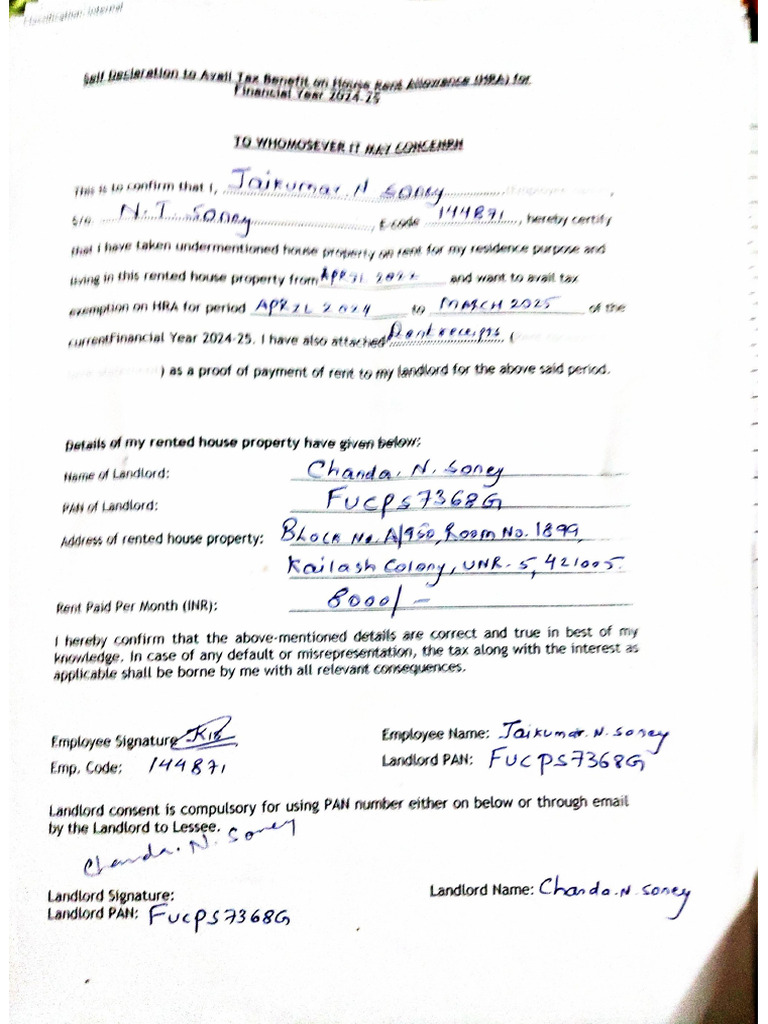 Classification: Internal
Self Declaration to Avail Tax Benefit on House Rent Allowance (HRA) for
Financial Year 2024-25
TO WHOMOSEVER IT MAY CONCERN
This is to confirm that I, Jaikumar. N Soney
S/o. N. T. Soney, E code 144871, hereby certify
that I have taken undermentioned house property on rent for my residence purpose and
living in this rented house property from APRIL 2022 and want to avail tax
exemption on HRA for period APRIL 2024 to MARCH 2025 of the
currentFinancial Year 2024-25. I have also attached Rent receipts (
) as a proof of payment of rent to my landlord for the above said period.
Details of my rented house property have given below:
Name of Landlord: Chanda. N. Soney
PAN of Landlord: FUCPS7368G
Address of rented house property: Block No. A/950, Room No. 1899,
Kailash Colony, UNR-5, 421005.
Rent Paid Per Month (INR): 8000/-
I hereby confirm that the above-mentioned details are correct and true in best of my
knowledge. In case of any default or misrepresentation, the tax along with the interest as
applicable shall be borne by me with all relevant consequences.
Employee Signature Employee Name: Jaikumar. N. Soney
Emp. Code: 144871 Landlord PAN: FUCPS7368G
Landlord consent is compulsory for using PAN number either on below or through email
by the Landlord to Lessee.
Chanda. N. Soney
Landlord Signature: Landlord Name: Chanda. N. Soney
Landlord PAN: FUCPS7368G